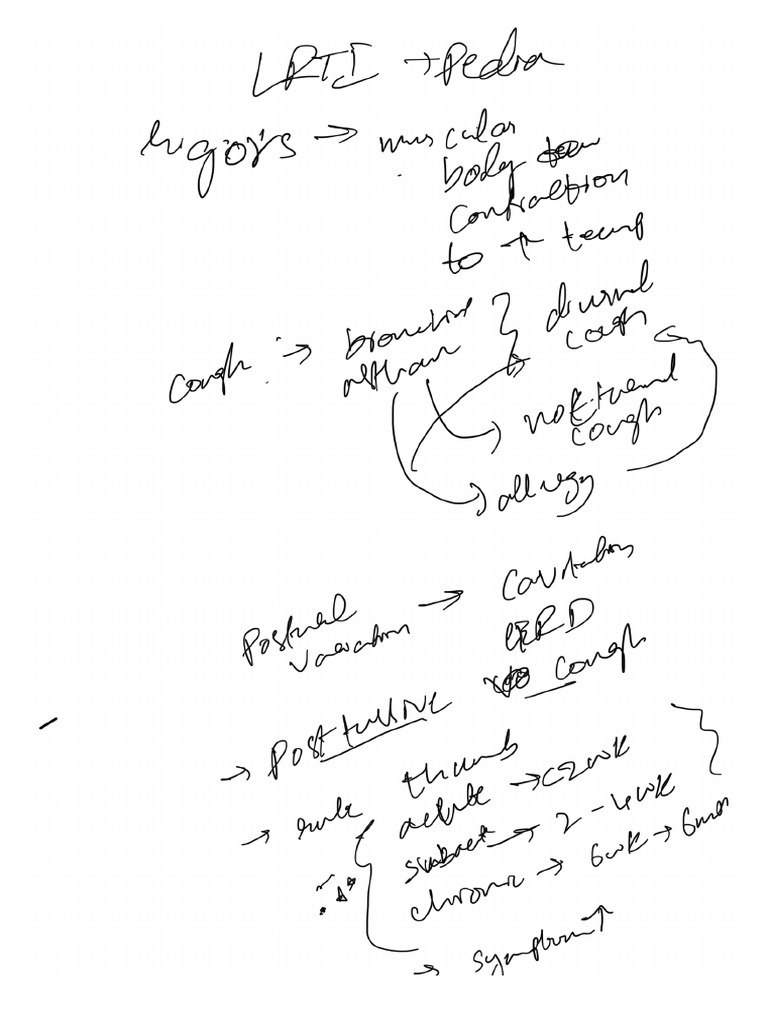 LRTI → Pedia
rigors → muscular
body
contraction
to ↑ temp
cough → bronchial
asthma } diurnal
cough
nocturnal
cough
allergy
Postural
variation → cavitation
GERD
→ Posttussive cough
→ rule thumb
acute → <2wk
subact → 2-4wk
chronic → 6wk → 6mon
→ symptom ↑